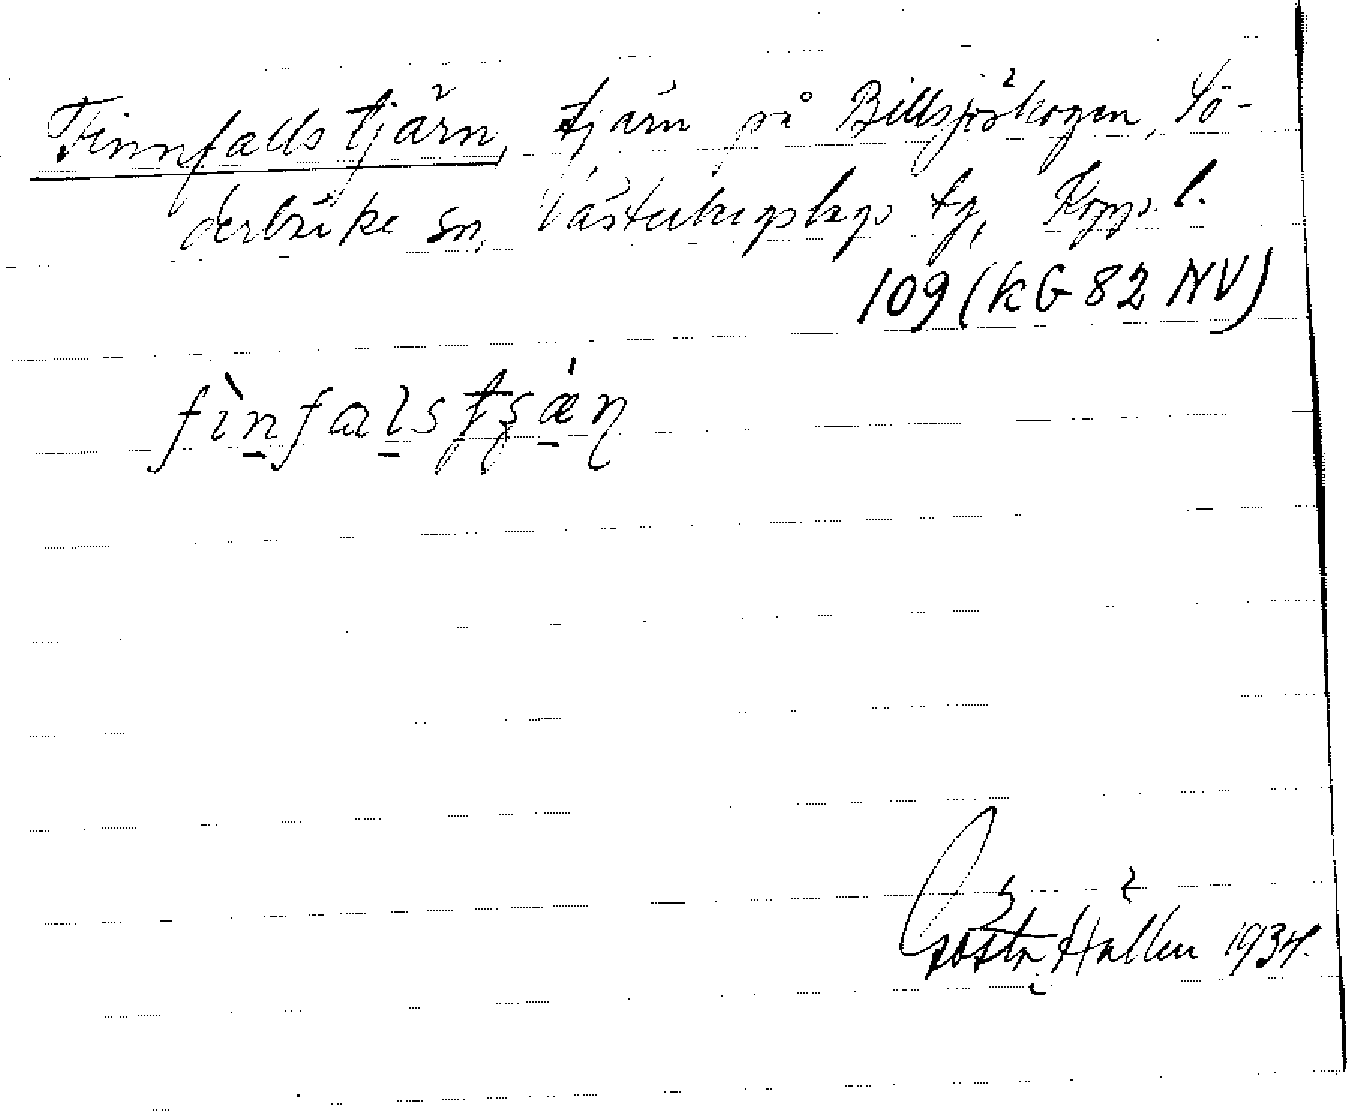 Finnfallstjärn, tjärn på Billsjöskogen, Sö-
derbärke sn, Västerbergslags tg, Kopp. l.
109 (KG 82 NV)
fìnfalstʂǽɳ
Gösta Hallén 1934.